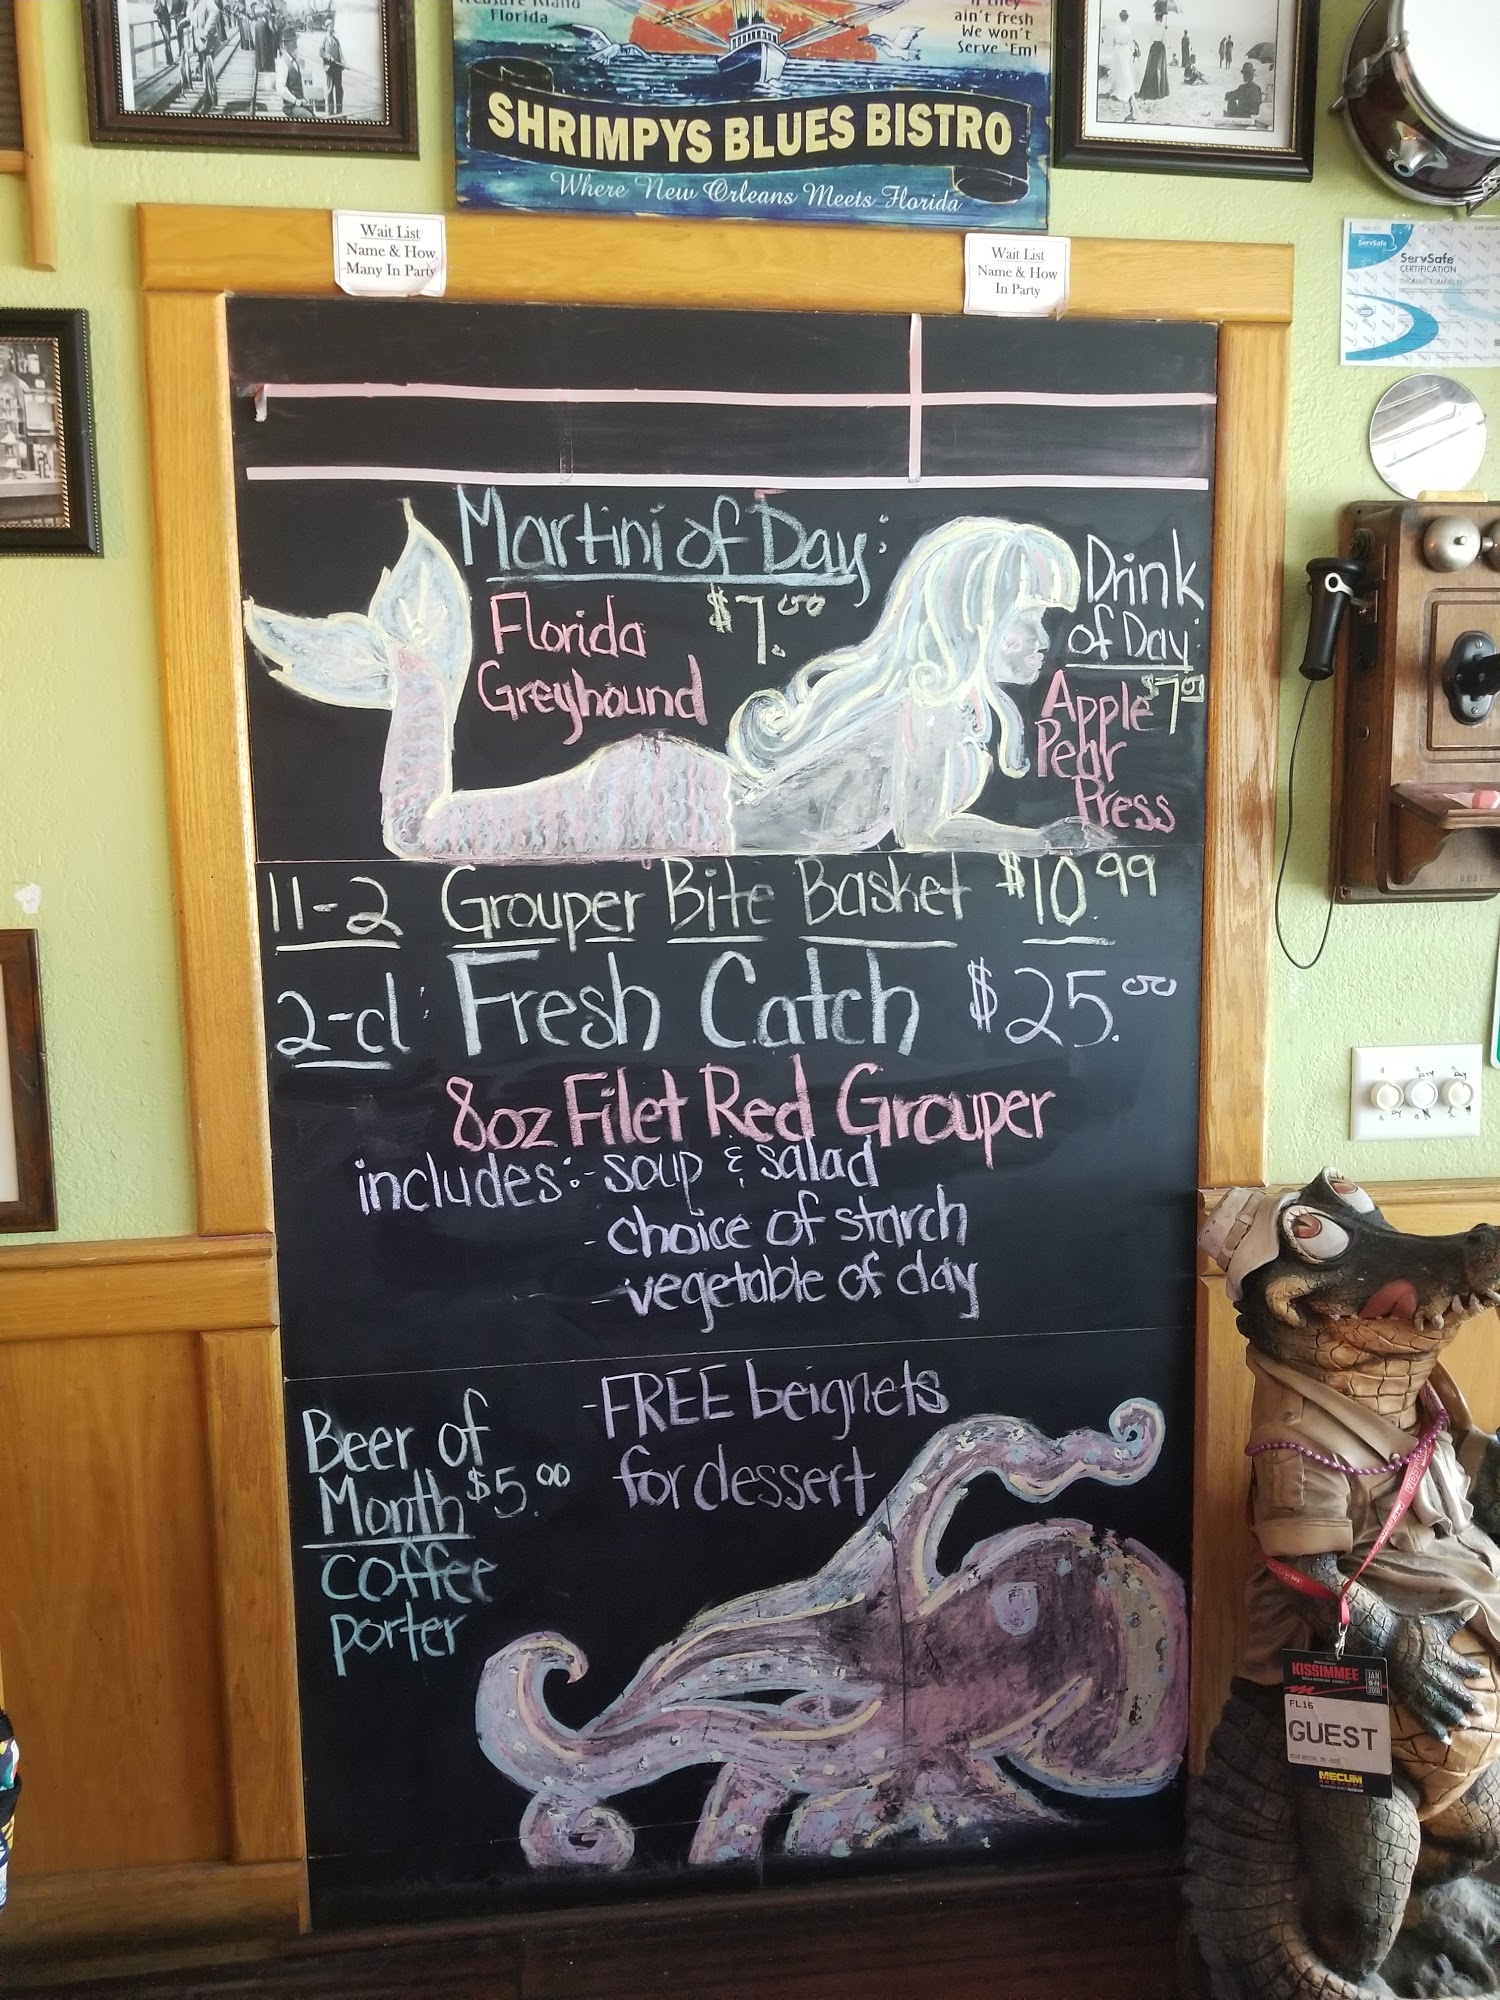 Treasure Island
Florida
If they
ain't fresh
We won't
Serve 'Em!
SHRIMPYS BLUES BISTRO
Where New Orleans Meets Florida
Wait List
Name & How
Many In Party
Wait List
Name & How
In Party
ServSafe
ServSafe
CERTIFICATION
Martini of Day:
Florida $7.00
Greyhound
Drink
of Day:
Apple $7.00
Pear
Press
11-2 Grouper Bite Basket $10.99
2-cl: Fresh Catch $25.00
8oz Filet Red Grouper
includes: - soup & salad
- choice of starch
- vegetable of day
- FREE beignets
for dessert
Beer of
Month $5.00
Coffee
porter
KISSIMMEE
JAN
2016
FL16
GUEST
MECUM